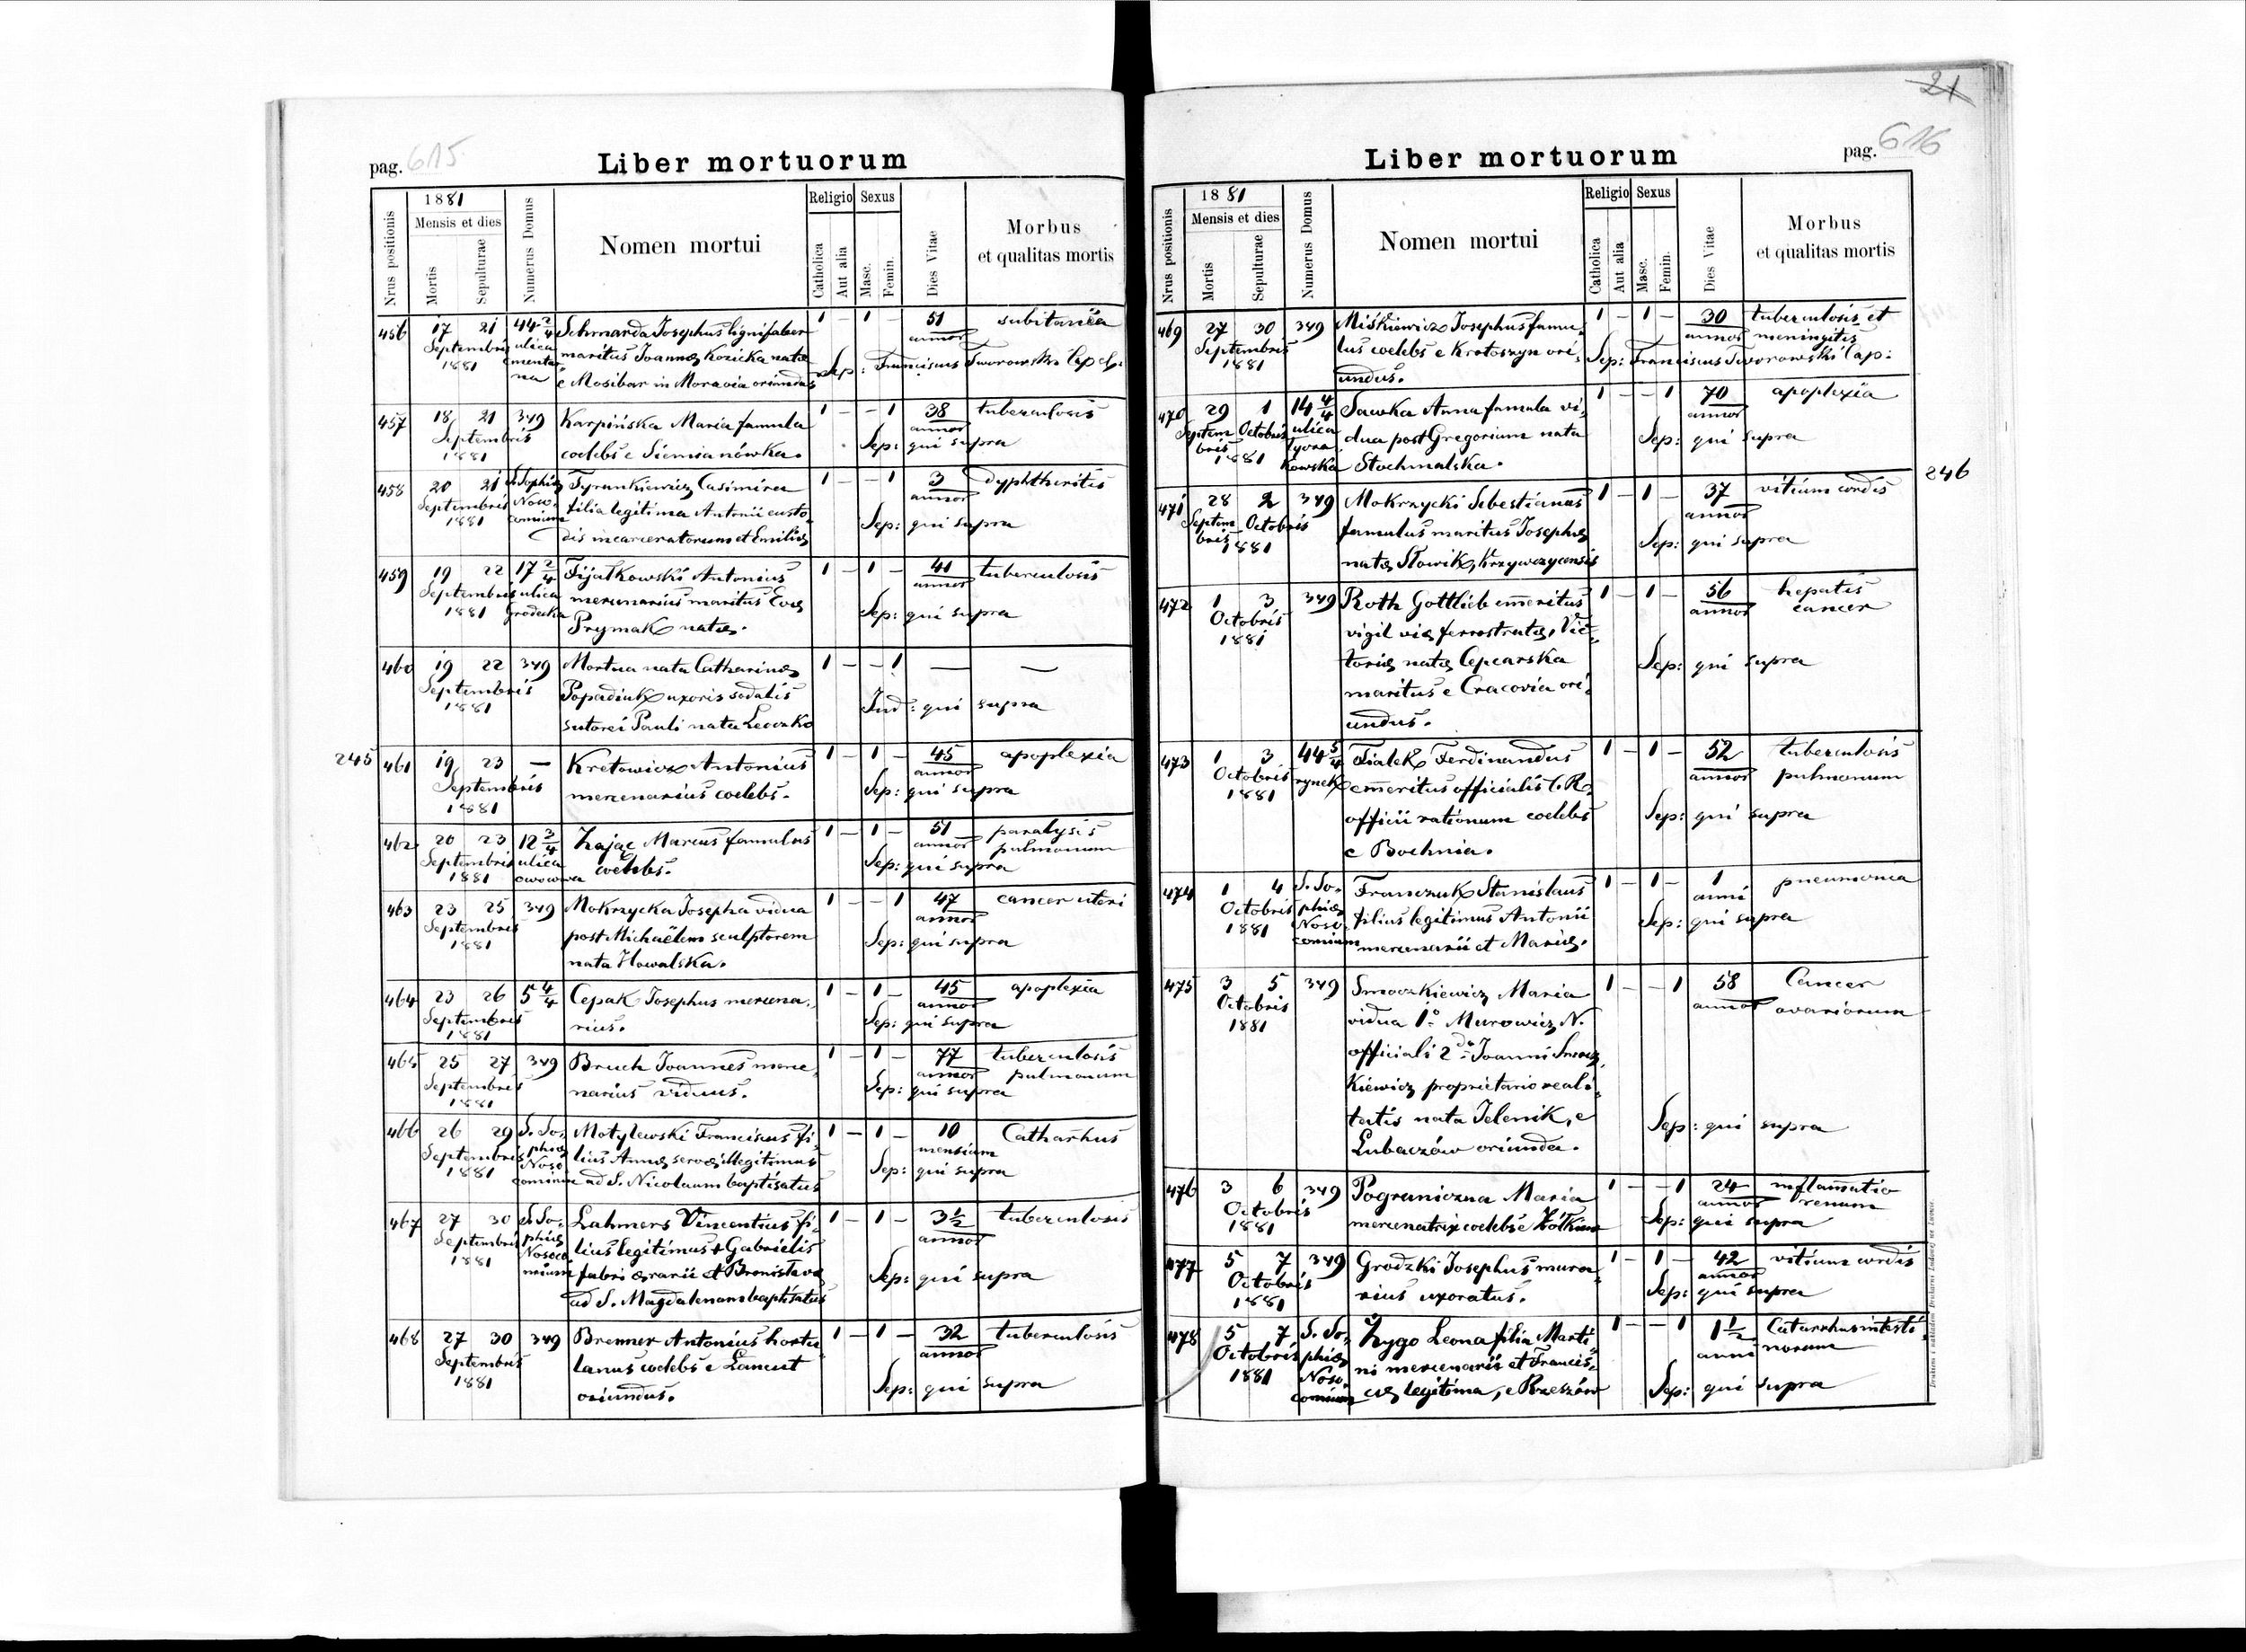 pag. 615
Liber mortuorum
Nrus positionis
1881
Mensis et dies
Mortis
Sepulturae
Numerus Domus
Nomen mortui
Religio
Catholica
Aut alia
Sexus
Masc.
Femin.
Dies Vitae
Morbus
et qualitas mortis
456 17 21 44 2/4 Schmarda Josephus lignifaber 1 – 1 – 51 subitanea
Septembris ulica maritus Joannae Kozicka natae annor
1881 cmentar
na e Mosibar in Moravia oriundus Sep: Franciscus Tworowski Cap:
457 18 21 349 Karpińska Maria famula 1 – – 1 38 tuberculosis
Septembris annor
1881 coelebs e Siemianówka. Sep: qui supra
458 20 21 S. Sophiae Tyrankiewicz Casimira 1 – – 1 3 dyphtheritis
Septembris filia legitima Antonii custo annor
1881 comium dis incarceratorum et Emiliae Sep: qui supra
459 19 22 17 2/4 Fijałkowski Antonius 1 – 1 – 41 tuberculosis
Septembris ulica mercenarius maritus Evae annor
1881 Grodecka Prymak natae. Sep: qui supra
460 19 22 349 Mortua nata Catharinae 1 – – 1 — —
Septembris Popadiuk uxoris sodalis
1881 sutorei Pauli nata Leoczko Ind: qui supra
245
461 19 23 — Kretowicz Antonius 1 – 1 – 45 apoplexia
Septembris mercenarius coelebs. annor
1881 Sep: qui supra
462 20 23 12 3/4 Zając Marcus famulus 1 – 1 – 51 paralysis
Septembris ulica coelebs. annor pulmonum
1881 owocowa Sep: qui supra
463 23 25 349 Mokrzycka Josepha vidua 1 – – 1 47 cancer uteri
Septembris post Michaëlem sculptorem annor
1881 nata Kowalska. Sep: qui supra
464 23 26 5 4/4 Cepak Josephus mercena, 1 – 1 – 45 apoplexia
Septembris rius. annor
1881 Sep: qui supra
465 25 27 349 Bruch Joannes merce, 1 – 1 – 77 tuberculosis
Septembris narius viduus. annor pulmonum
1881 Sep: qui supra
466 26 29 S. So, Motylewski Franciscus fi, 1 – 1 – 10 Catharhus
Septembris phiae lius Annae servae illegitimus mensium
1881 Noso
comium ad S. Nicolaum baptisatus Sep: qui supra
467 27 30 S. So, Lahmers Vincentius fi, 1 – 1 – 3½ tuberculosis
Septembris phiae lius legitimus Gabrielis annor
1881 Nosoco
mium fabri aerarii et Bronislavae Sep: qui supra
ad S. Magdalenam baptisatus
468 27 30 349 Brenner Antonius hortu, 1 – 1 – 32 tuberculosis
Septembris lanus coelebs e Łancut annor
1881 oriundus. Sep: qui supra
21
pag. 616
Liber mortuorum
Nrus positionis
1881
Mensis et dies
Mortis
Sepulturae
Numerus Domus
Nomen mortui
Religio
Catholica
Aut alia
Sexus
Masc.
Femin.
Dies Vitae
Morbus
et qualitas mortis
469 27 30 349 Miśkiewicz Josephus famu, 1 – 1 – 30 tuberculosis et
Septembris lus coelebs e Krotoszyn ori, annor meningitis
1881 undus. Sep: Franciscus Tworowski Cap:
470 29 1 14 4/4 Sawka Anna famula vi, 1 – – 1 70 apoplexia
Septem Octobris ulica dua post Gregorium nata annor
bris 1881 Łycza
kowska Stochmalska. Sep: qui supra
246
471 28 2 349 Mokrzycki Sebestianus 1 – 1 – 37 vitium cordis
Septem Octobris famulus maritus Josephae annor
bris 1881 natae Słowik, Krzywczycensis Sep: qui supra
472 1 3 349 Roth Gottlieb emeritus 1 – 1 – 56 hepatis
Octobris vigil viae ferrostratae, Vic, annor cancer
1881 toriae natae Cepcarska Sep: qui supra
maritus e Cracovia ori,
undus.
473 1 3 44 5/4 Fialek Ferdinandus 1 – 1 – 52 tuberculosis
Octobris rynek emeritus officialis C. R. annor pulmonum
1881 officii rationum coelebs Sep: qui supra
e Bochnia.
474 1 4 S. So, Franczuk Stanislaus 1 – 1 – 1 pneumonia
Octobris phiae filius legitimus Antonii anni
1881 Noso
comium mercenarii et Mariae. Sep: qui supra
475 3 5 349 Smoczkiewicz Maria 1 – – 1 58 Cancer
Octobris vidua 1º Murowicz N. annor ovariorum
1881 officiali 2do Joanni Smocz,
kiewicz proprietario reali,
tatis nata Jelenik, e Sep: qui supra
Lubaczów oriunda.
476 3 6 349 Pograniczna Maria 1 – – 1 24 inflamatio
Octobris mercenatrix coelebs e Żółkiew annor renum
1881 Sep: qui supra
477 5 7 349 Grodzki Josephus mura, 1 – 1 – 42 vitium cordis
Octobris rius uxoratus. annor
1881 Sep: qui supra
478 5 7 S. So, Zygo Leona filia Marti, 1 – – 1 1½ Catarrhus intesti,
Octobris phiae ni mercenarii et Francis, anni norum
1881 Noso
comium cae legitima, e Rzeszów Sep: qui supra